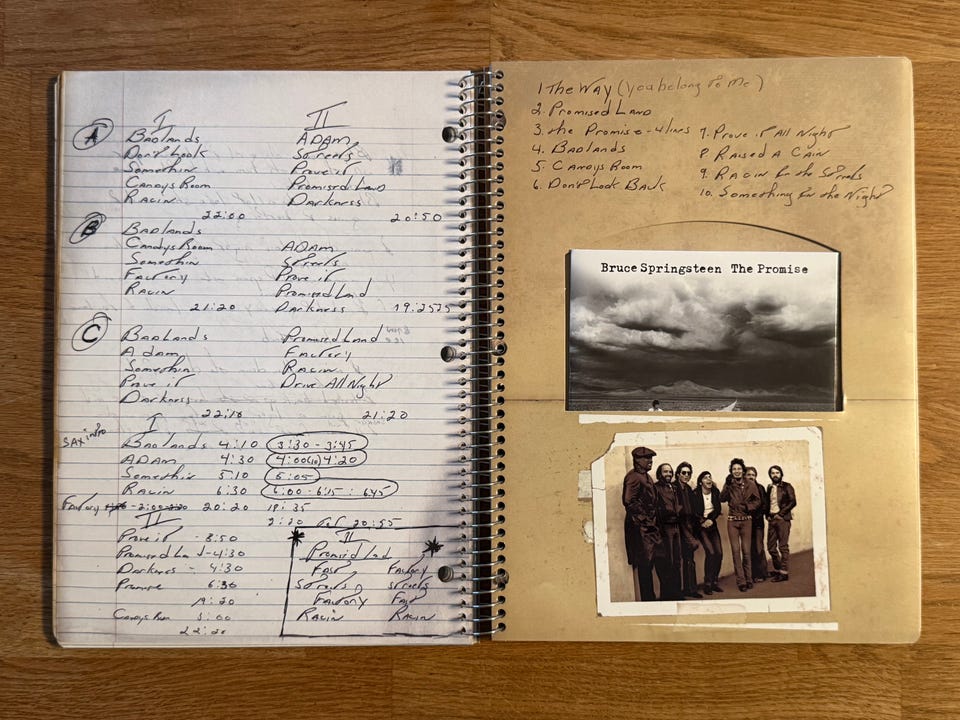 I II
A
Badlands ADAM
Don't Look Streets
Somethin Prove it
Candys Room Promised Land
Racin Darkness
22:00 20:50
B
Badlands
Candys Room ADAM
Somethin Streets
Factory Prove it
Racin Promised Land
21:20 Darkness 19:25
C
Badlands Promised Land
Adam Factory
Somethin Racin
Prove it Drive All Night
Darkness
22:10 21:20
I
SAX intro
Badlands 4:10 3:30 - 3:45
ADAM 4:30 4:00 4:20
Somethin 5:10 5:05
Racin 6:30 6:00 - 6:15 : 6:45
Factory 20:20 18:35
II
20:55
Prove it - 3:50
Promised Land - 4:30
Darkness - 4:30
Promise 6:30
19:20
Candys Room 3:00
22:20
II
Promised Land
Fast Factory
Streets Streets
Factory Fast
Racin Racin
1 The Way (you belong to me)
2. Promised Land
3. the Promise - 4 lines
4. Badlands
5. Candys Room
6. Don't Look Back
7. Prove it All Night
8. Raised A Cain
9. Racin in the Streets
10. Something in the Night
Bruce Springsteen The Promise